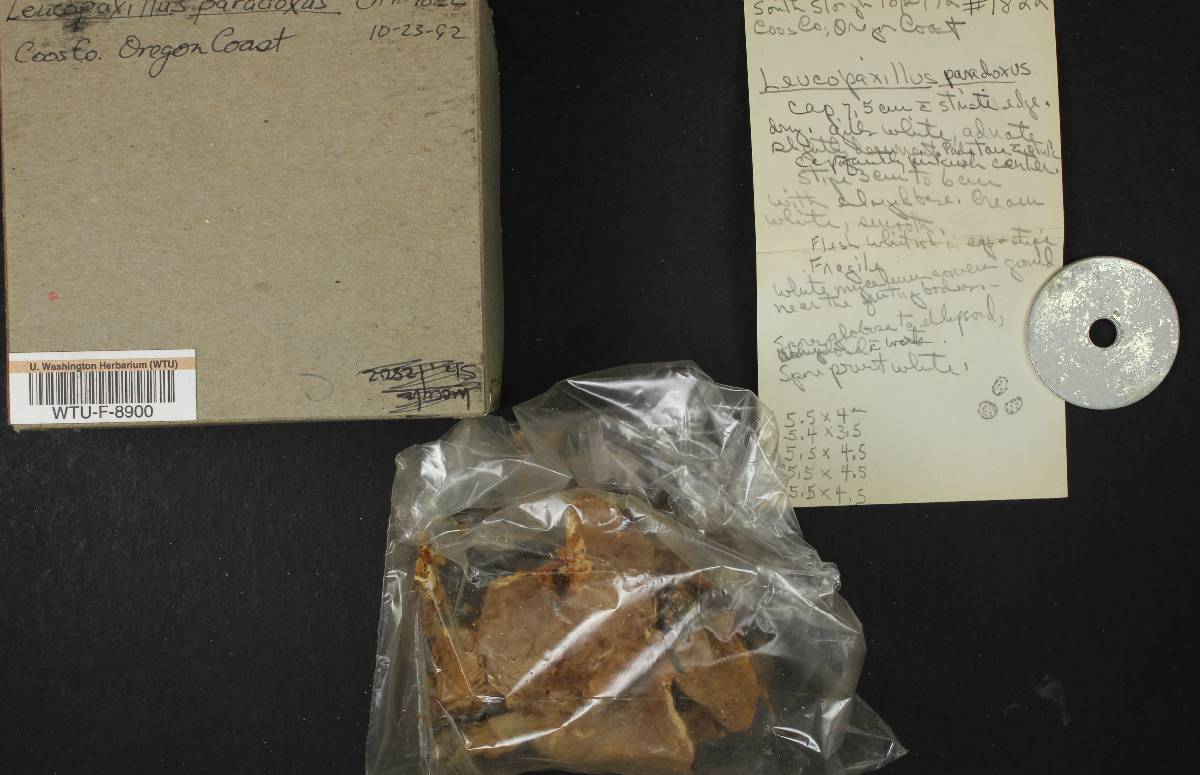 Leucopaxillus paradoxus
10-23-92
Coos Co. Oregon Coast
U. Washington Herbarium (WTU)
WTU-F-8900
South Slough 10/21/92 #1822
Coos Co, Oregon Coast
Leucopaxillus paradoxus
Cap 7.5 cm c striate edge.
dry. gills white, adnate
slightly decurrent.
center.
Stipe 3 cm to 6 cm
with base. Cream
white, smooth.
Flesh whitish in cap + stipe
Fragile
white mycelium covers ground
near the fruiting bodies -
Spores globose to ellipsoid,
amyloid c warts.
Spore print white.
5.5 x 4
5.4 x 3.5
5.5 x 4.5
5.5 x 4.5
5.5 x 4.5